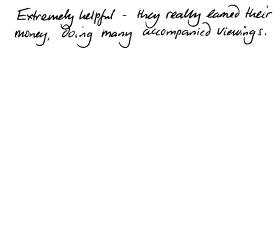 Extremely helpful - they really earned their
money, doing many accompanied viewings.